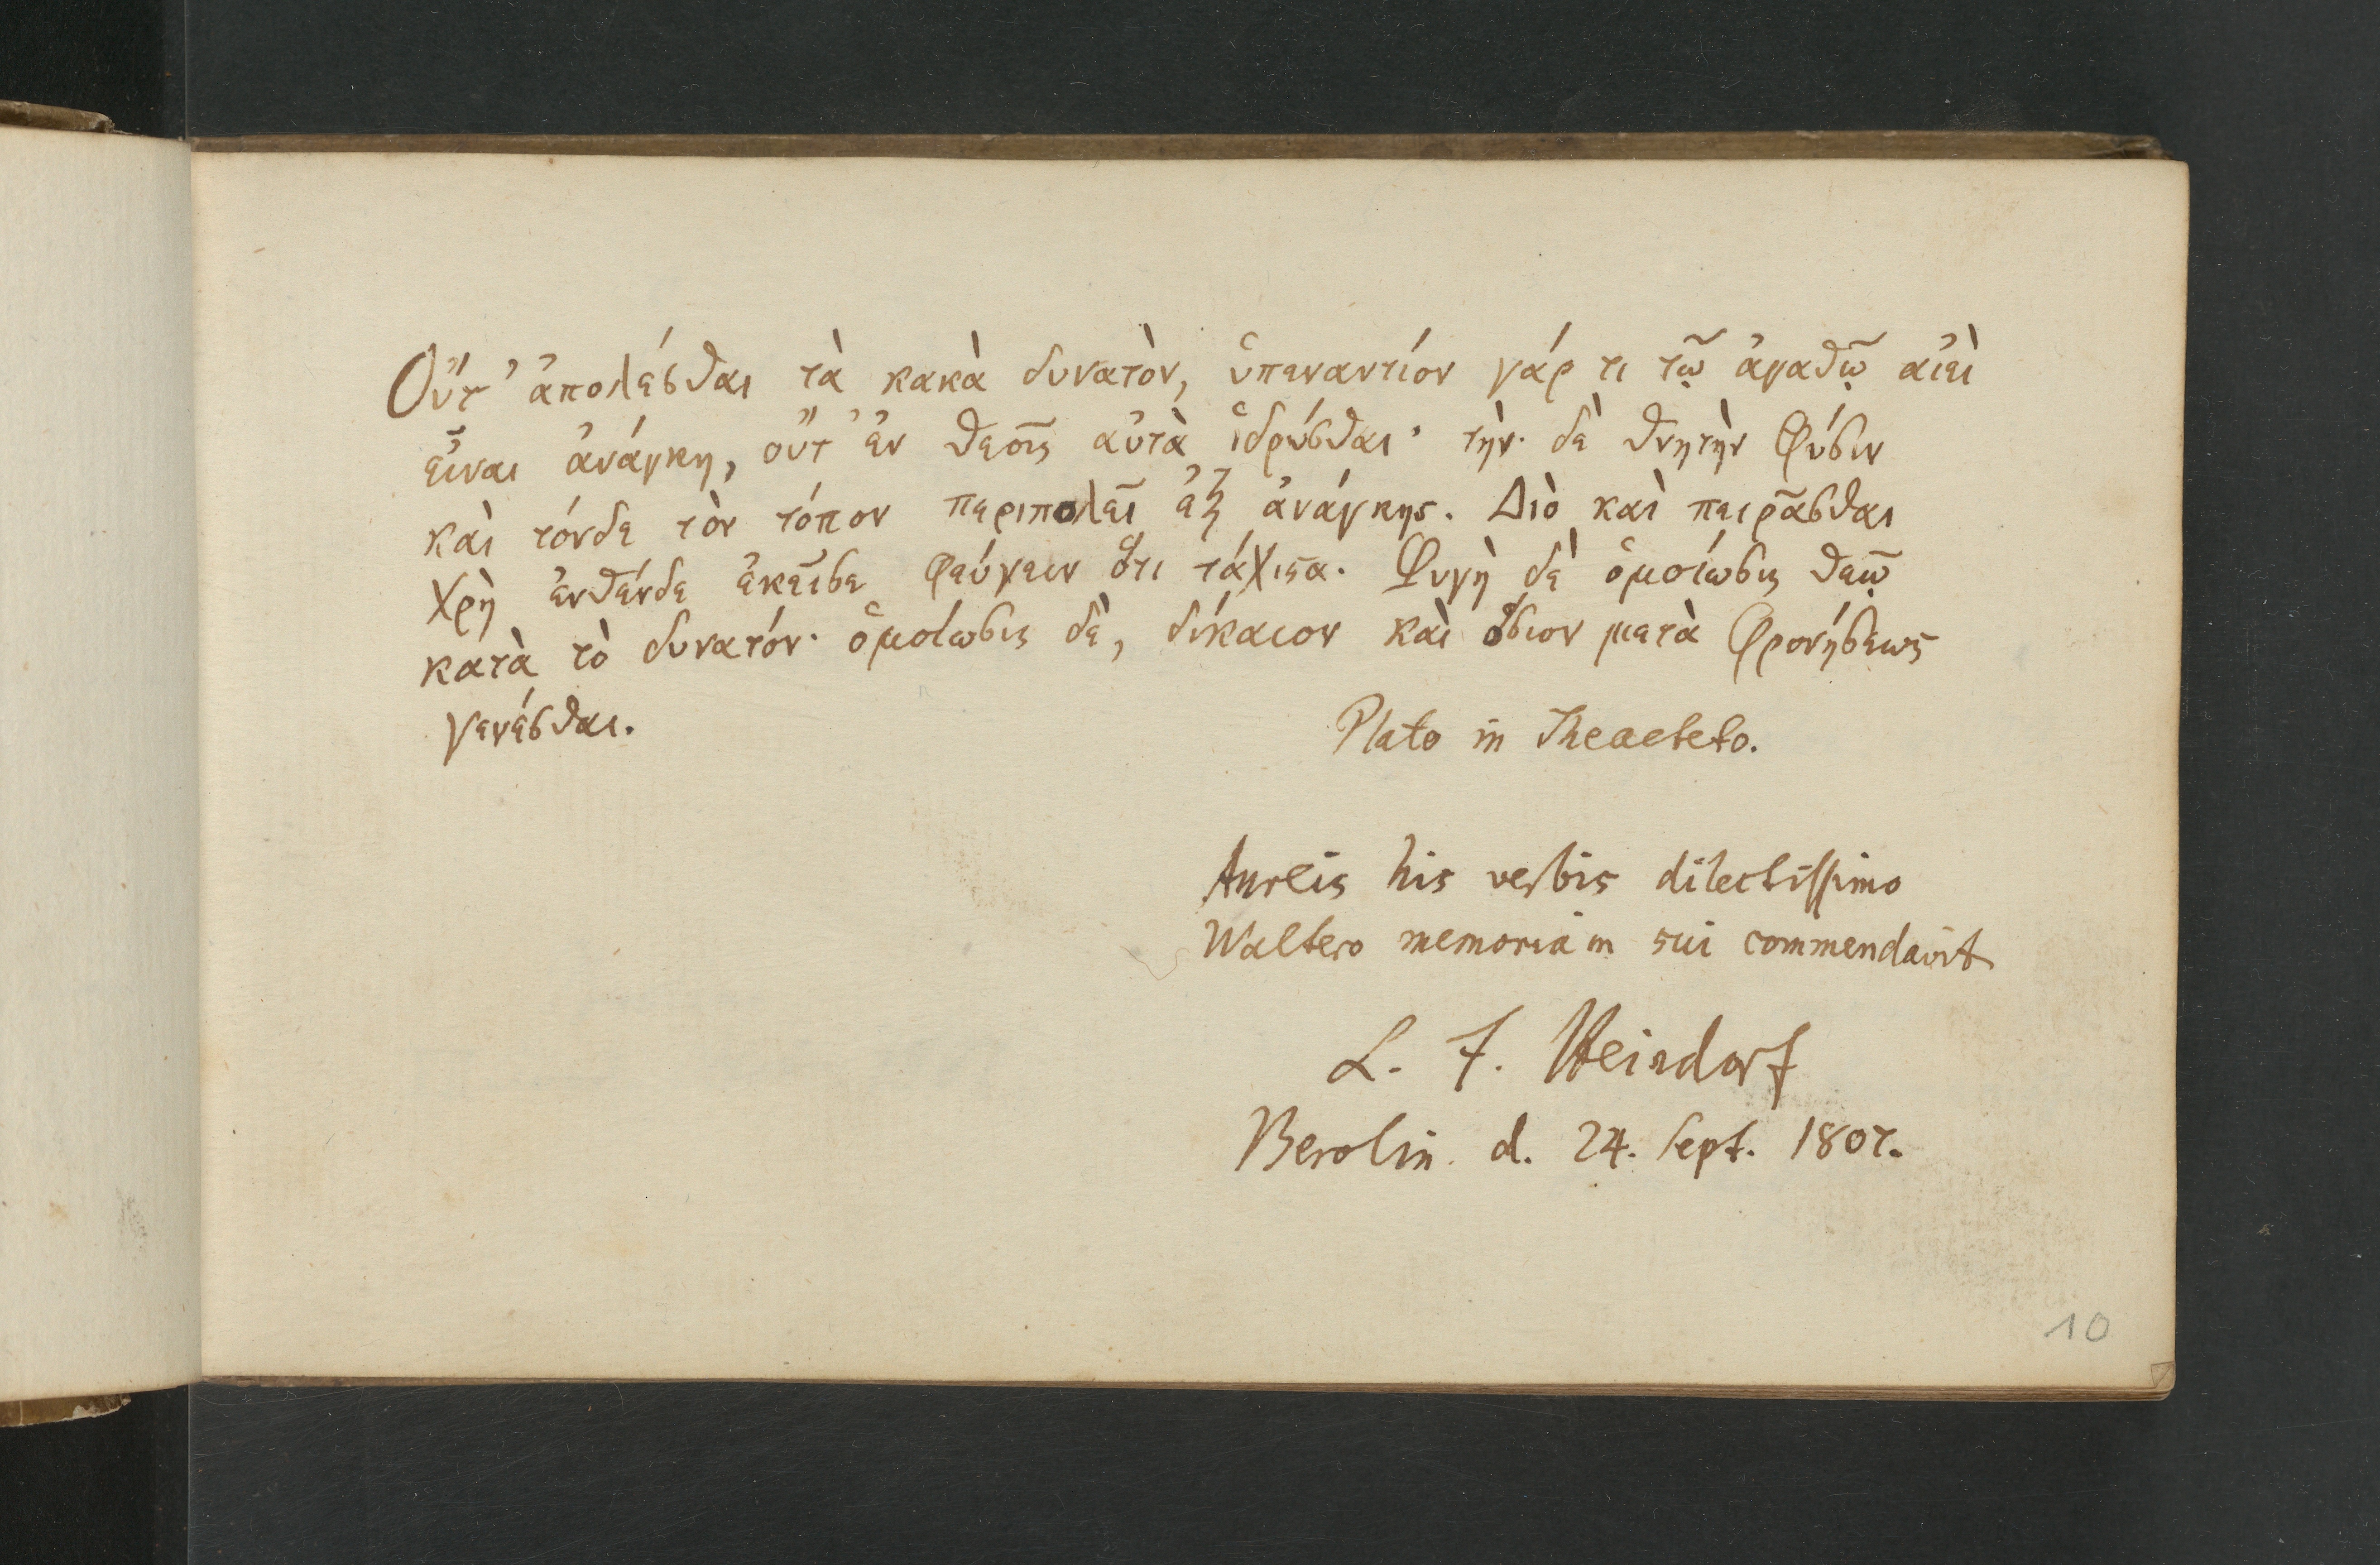 Οὔτ' ἀπολέσθαι τὰ κακὰ δυνατὸν, ὑπεναντίον γάρ τι τῷ ἀγαθῷ αἰεὶ
εἶναι ἀνάγκη, οὔτ' ἐν θεοῖς αὐτὰ ἱδρύσθαι· τὴν δὲ θνητὴν φύσιν
καὶ τόνδε τὸν τόπον περιπολεῖ ἐξ ἀνάγκης. Διὸ καὶ πειρᾶσθαι
χρὴ ἐνθένδε ἐκεῖσε φεύγειν ὅτι τάχιϛα. Φυγὴ δὲ ὁμοίωσις θεῷ
κατὰ τὸ δυνατόν· ὁμοίωσις δὲ, δίκαιον καὶ ὅσιον μετὰ φρονήσεως
γενέσθαι.
Plato in Theaeteto.
Aureis his verbis dilectissimo
Waltero memoriam sui commendavit
L. F. Heindorf
Berolin. d. 24. Sept. 1807.
10